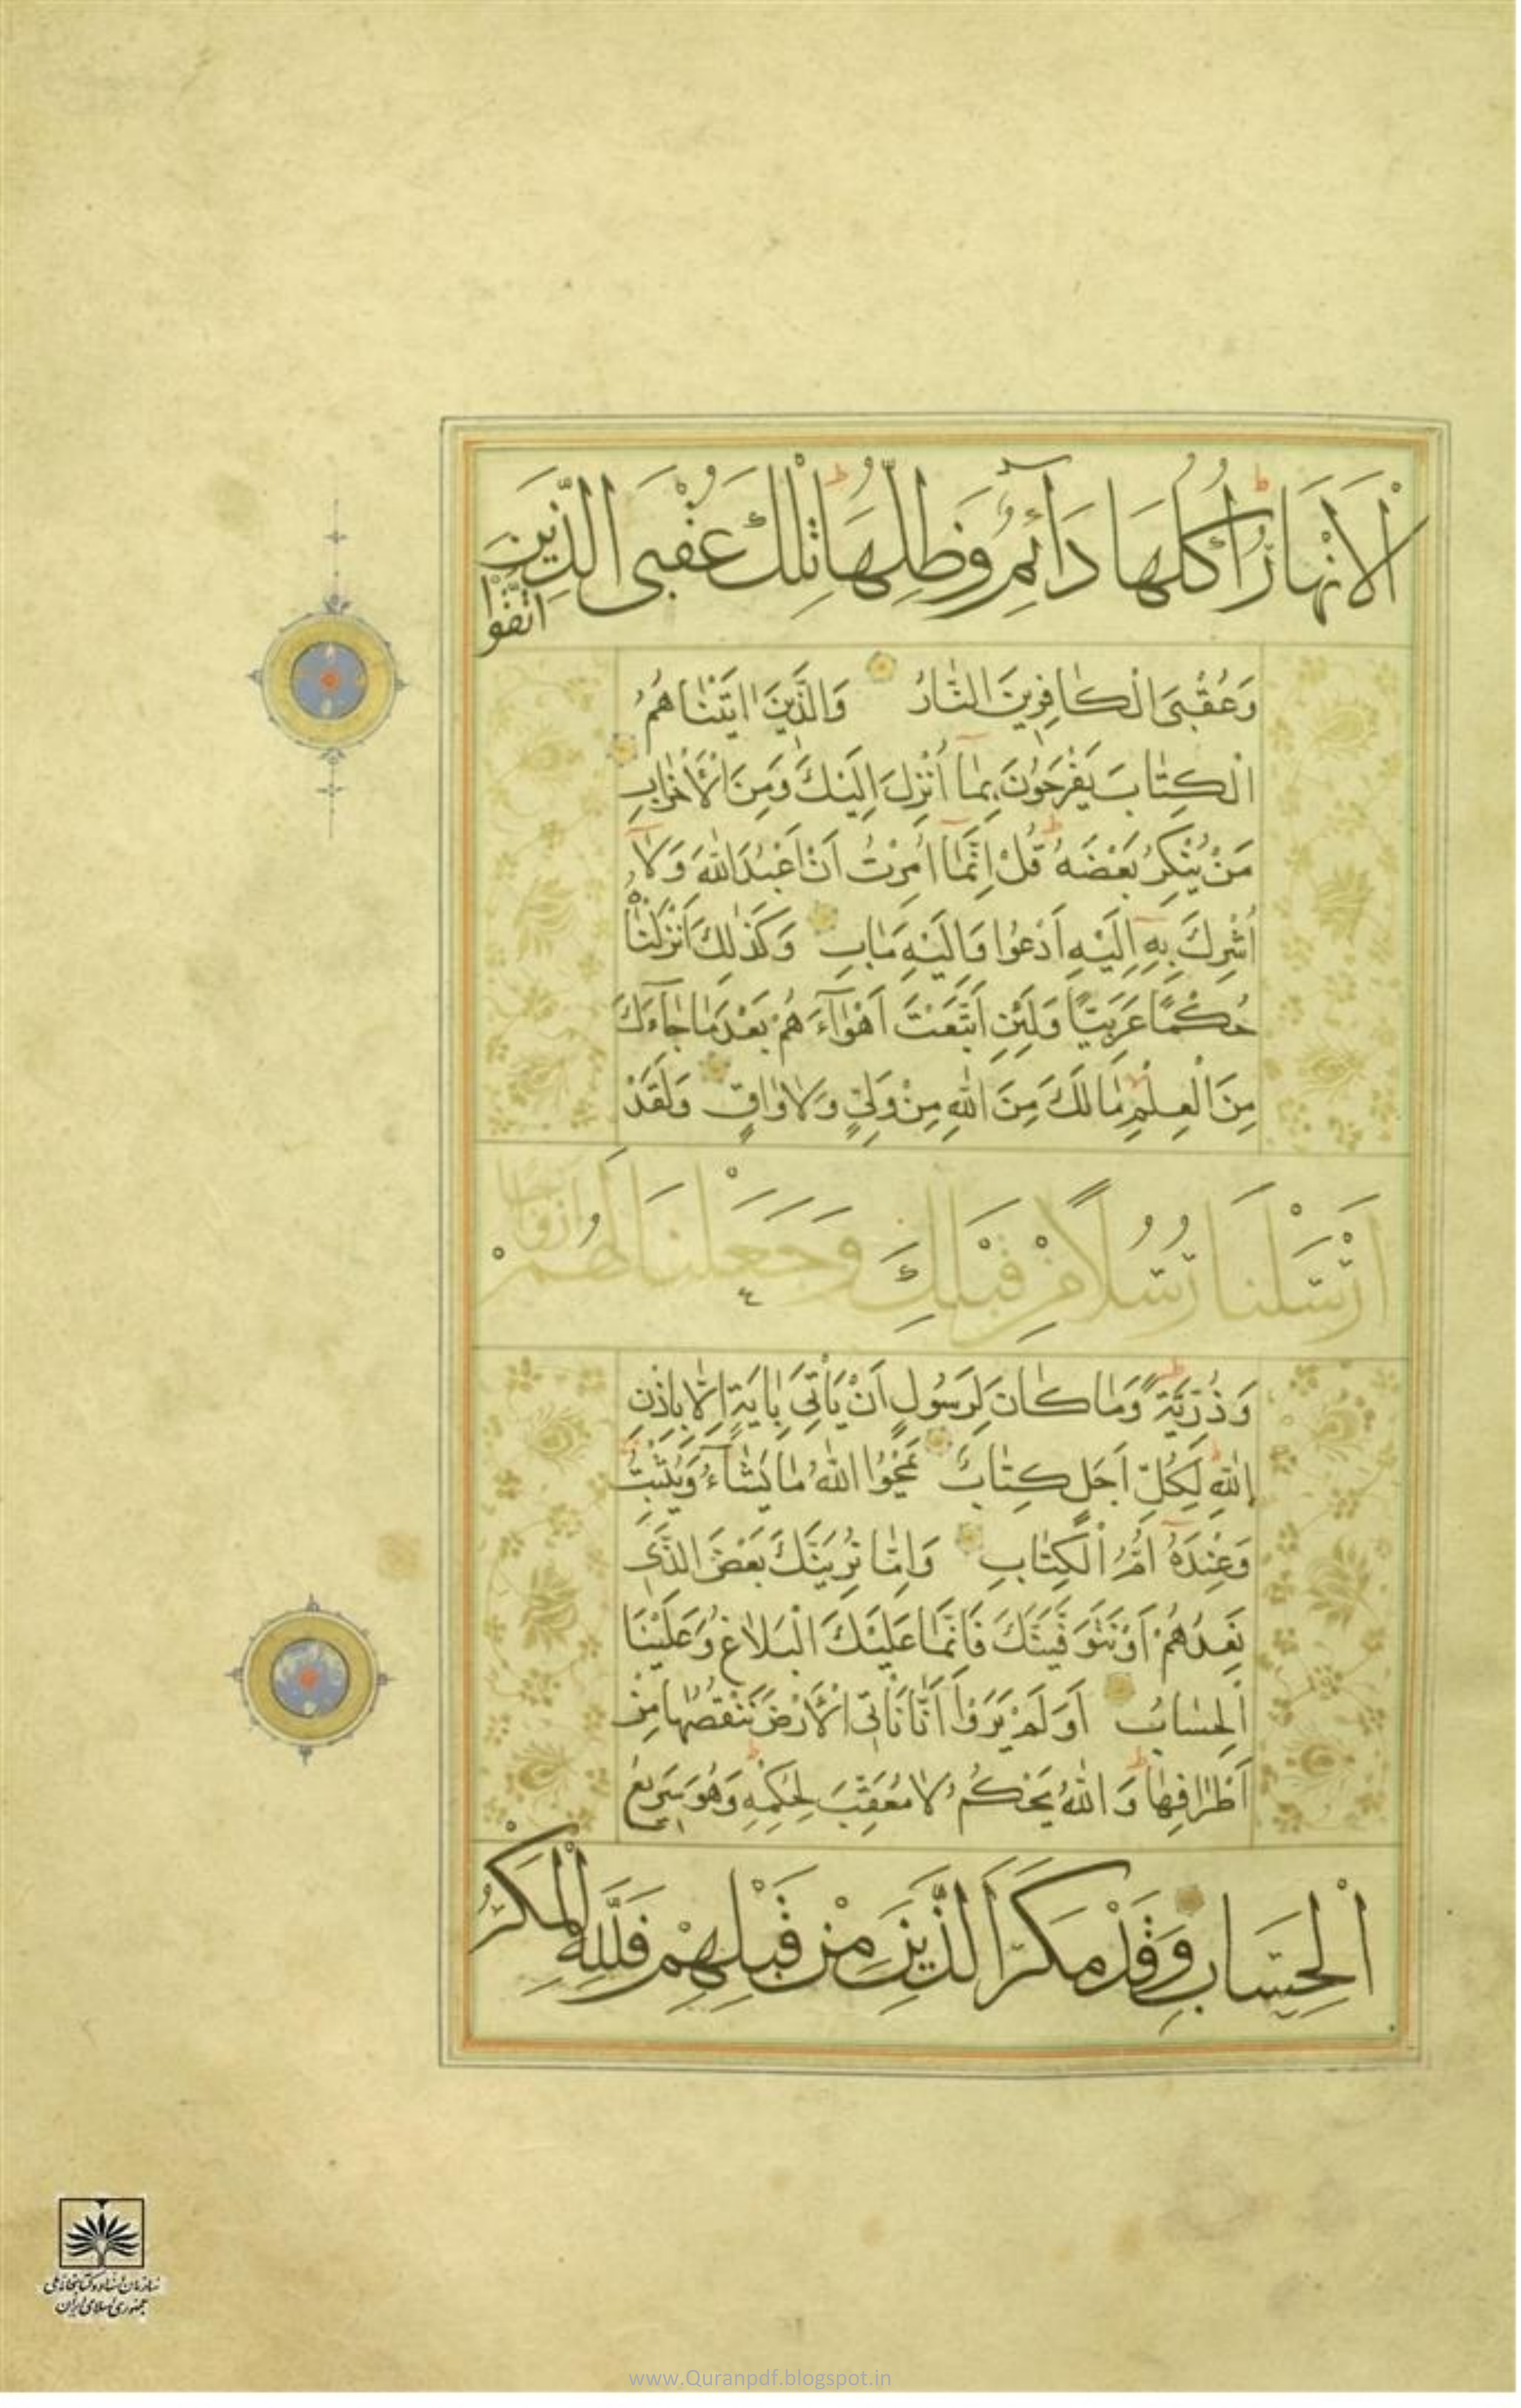 اَلْاَنْهَارُ اُكُلُهَا دَآئِمٌ وَظِلُّهَا تِلْكَ عُقْبَى الَّذِينَ
اتَّقَوْا
وَعُقْبَى الْكَافِرِينَ النَّارُ وَالَّذِينَ اٰتَيْنَاهُمُ
الْكِتَابَ يَفْرَحُونَ بِمَا اُنْزِلَ اِلَيْكَ وَمِنَ الْاَحْزَابِ
مَنْ يُنْكِرُ بَعْضَهُ قُلْ اِنَّمَا اُمِرْتُ اَنْ اَعْبُدَ اللهَ وَلَا
اُشْرِكَ بِهِ اِلَيْهِ اَدْعُوا وَاِلَيْهِ مَاٰبِ وَكَذٰلِكَ اَنْزَلْنَاهُ
حُكْمًا عَرَبِيًّا وَلَئِنِ اتَّبَعْتَ اَهْوَآءَهُمْ بَعْدَ مَا جَآءَكَ
مِنَ الْعِلْمِ مَا لَكَ مِنَ اللهِ مِنْ وَلِيٍّ وَلَا وَاقٍ وَلَقَدْ
اَرْسَلْنَا رُسُلًا مِنْ قَبْلِكَ وَجَعَلْنَا لَهُمْ اَزْوَاجًا
وَذُرِّيَّةً وَمَا كَانَ لِرَسُولٍ اَنْ يَأْتِيَ بِاٰيَةٍ اِلَّا بِاِذْنِ
اللهِ لِكُلِّ اَجَلٍ كِتَابٌ يَمْحُوا اللهُ مَا يَشَآءُ وَيُثْبِتُ
وَعِنْدَهُ اُمُّ الْكِتَابِ وَاِمَّا نُرِيَنَّكَ بَعْضَ الَّذِي
نَعِدُهُمْ اَوْ نَتَوَفَّيَنَّكَ فَاِنَّمَا عَلَيْكَ الْبَلَاغُ وَعَلَيْنَا
الْحِسَابُ اَوَلَمْ يَرَوْا اَنَّا نَأْتِي الْاَرْضَ نَنْقُصُهَا مِنْ
اَطْرَافِهَا وَاللهُ يَحْكُمُ لَا مُعَقِّبَ لِحُكْمِهِ وَهُوَ سَرِيعُ
الْحِسَابِ وَقَدْ مَكَرَ الَّذِينَ مِنْ قَبْلِهِمْ فَلِلّٰهِ الْمَكْرُ
سازمان اسناد و کتابخانه ملی
جمهوری اسلامی ایران
www.Quranpdf.blogspot.in